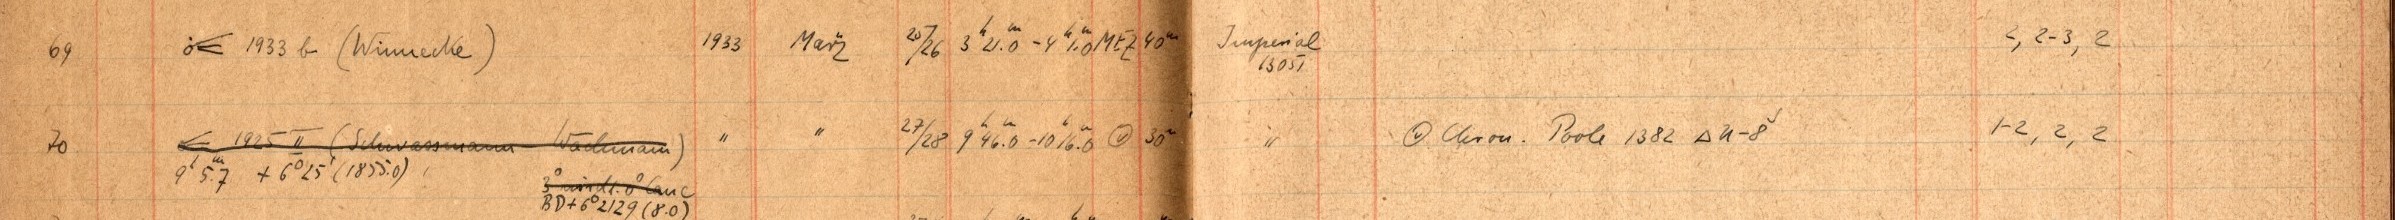 69 ö☄ 1933 b (Winnecke) 1933 März 25/26 3ʰ 21.ᵐ0 - 4ʰ 1.ᵐ0 MEZ 40ᵐ Imperial 2, 2-3, 2
13051
70 ☄ 1925 II (Schwassmann Wachmann) " " 27/28 9ʰ 46.ᵐ0 - 10ʰ 16.ᵐ0 ⓤ 30ᵐ " ⓤ Chron. Poole 1382 Δu-8ˢ 1-2, 2, 2
9ʰ 5.ᵐ7 + 6° 25' (1855.0)
BD+6° 2129 (8.0)